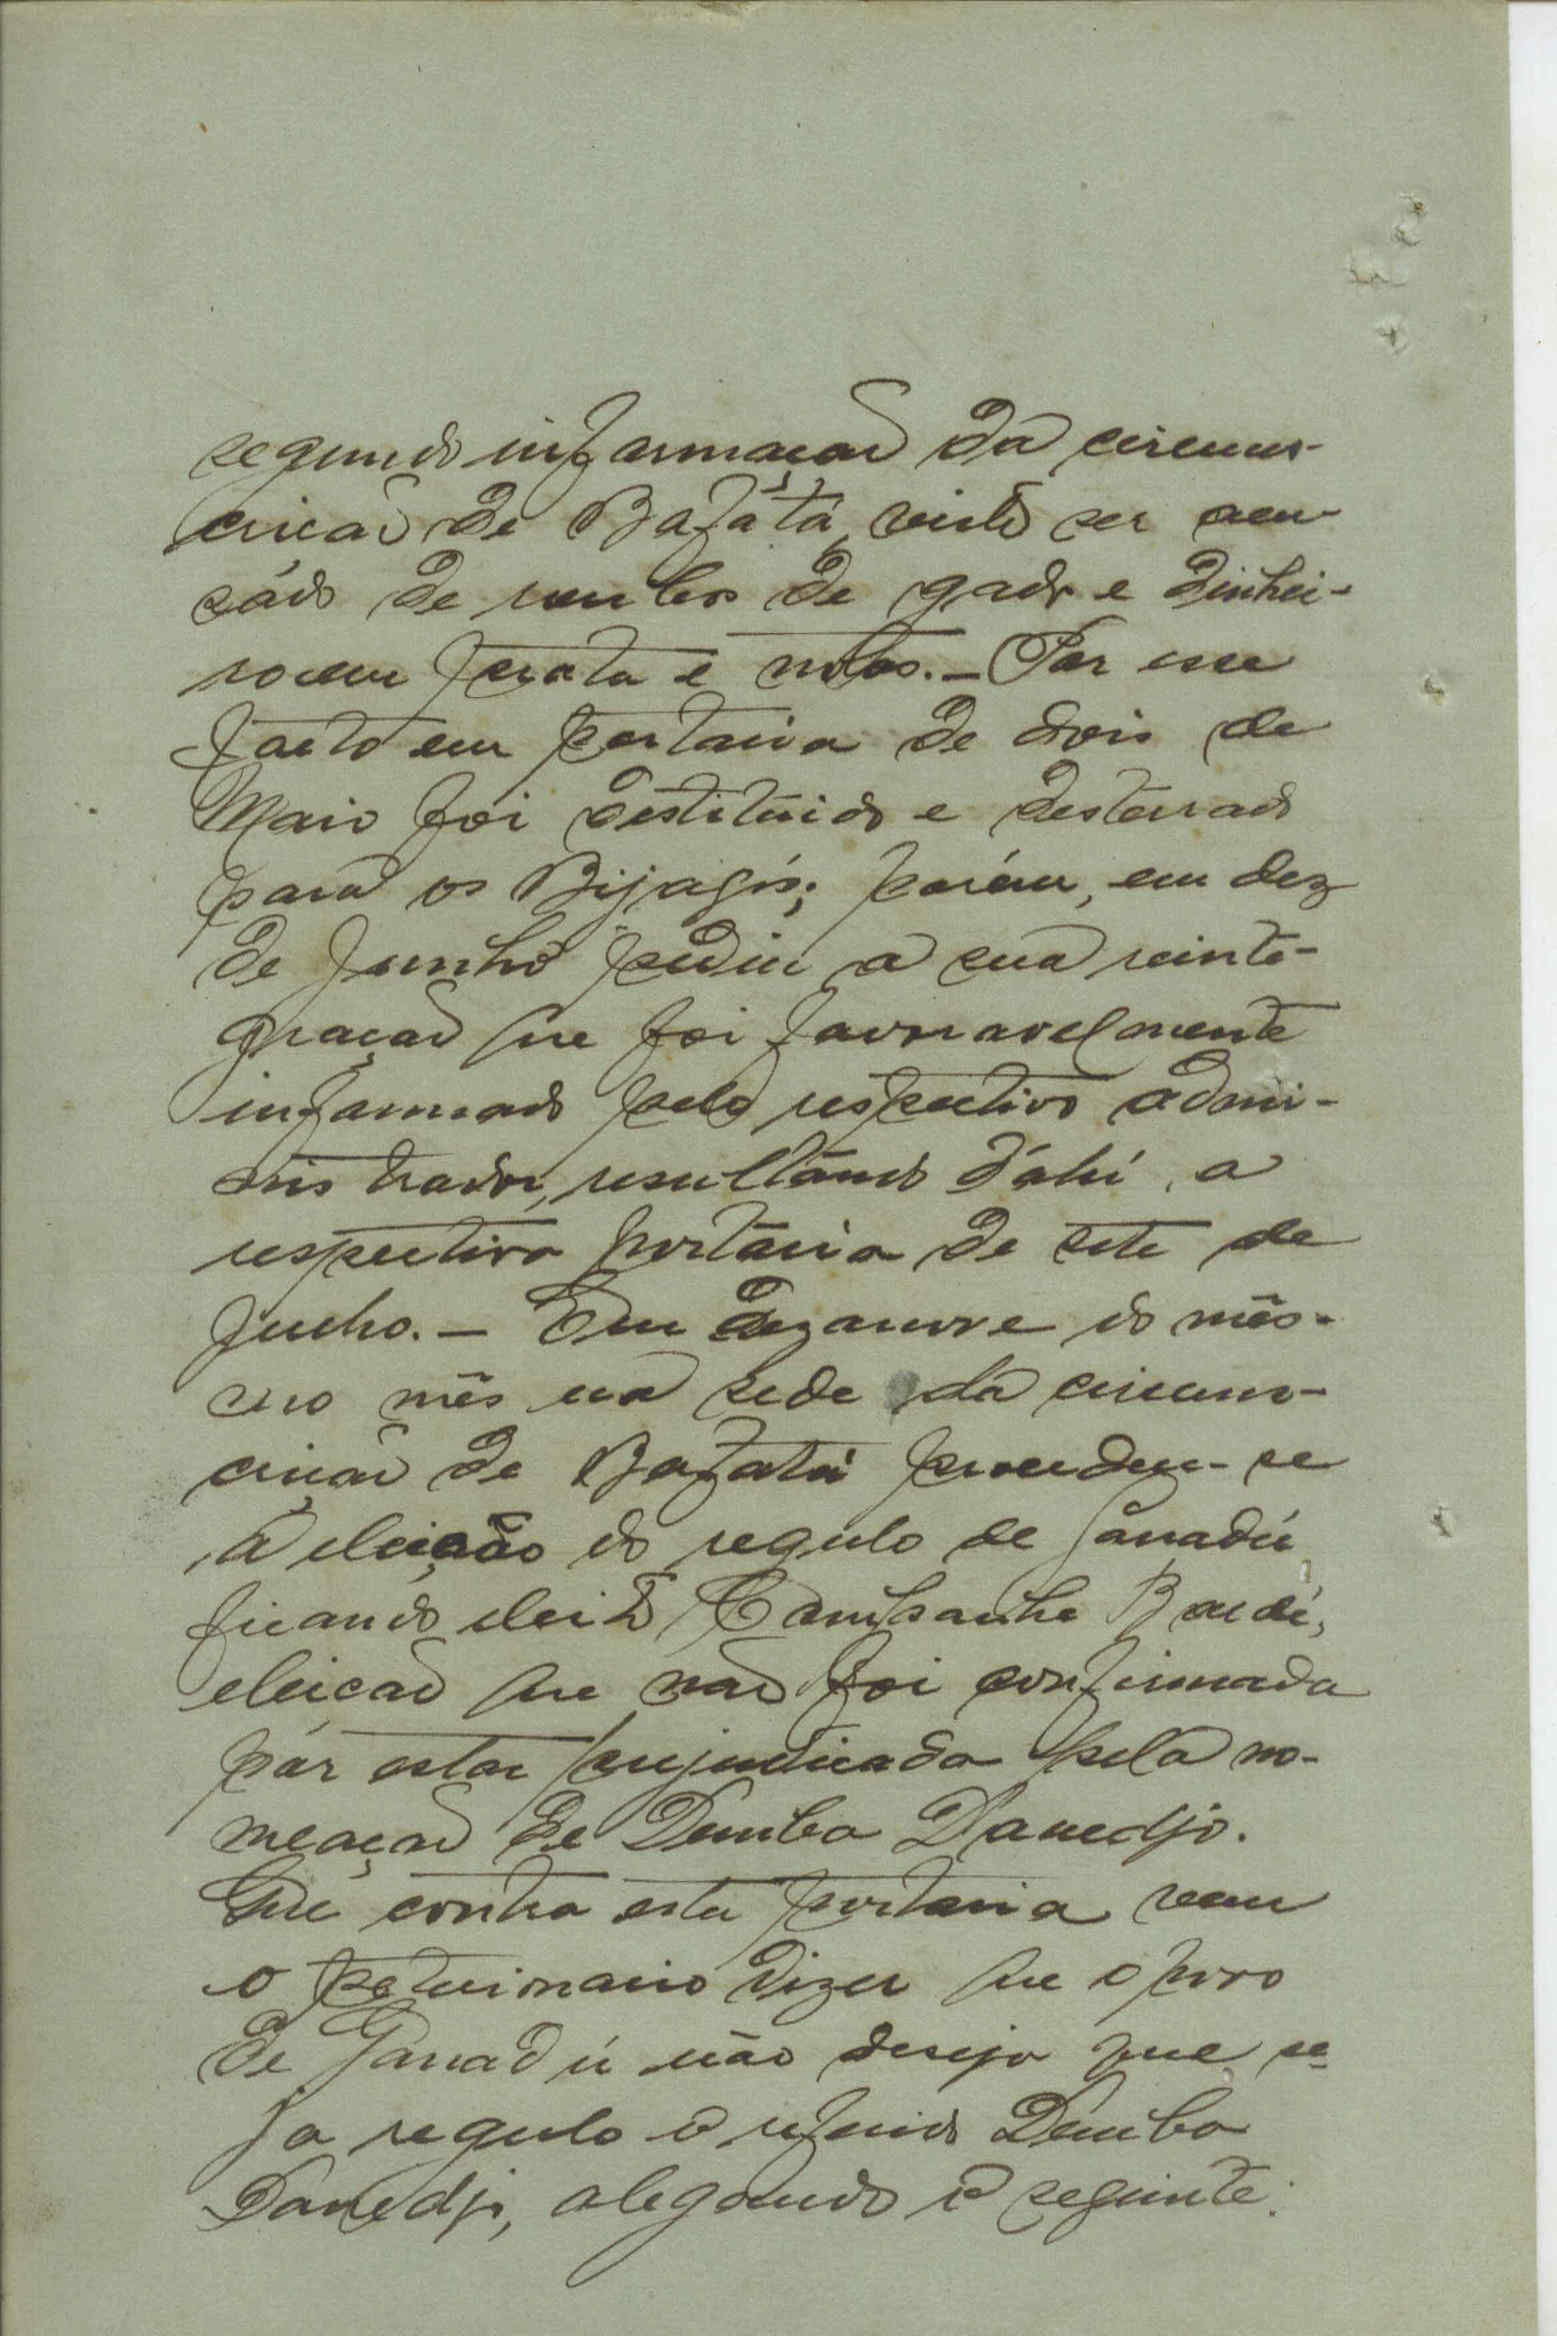 segundo informação da circuns-
crição de Bafatá, visto ser acu-
sádo de roubos de gado e dinhei-
ro em prata e notas. — Por esse
facto em portaria de dois de
Maio foi destituido e desterrado
para os Bijagós; porém, em dez
de Junho pediu a sua reinte-
gração que foi favoravelmente
informado pelo respectivo admi-
nistrador, resultando d'ahí, a
respectiva portaria de sete de
Julho. — Em dezanove do mês-
mo mês na sede da circuns-
crição de Bafatá procedeu-se
á eleição do regulo de Ganadú
ficando eleito Campanhe Baldé,
eleição que não foi confirmada
por estar prejudicada pela no-
meação de Demba Danedjo.
Que contra esta portaria vem
o peticionario dizer que o povo
de Ganadú não deseja que se-
ja regulo o referido Demba
Danedjo, alegando o seguinte: